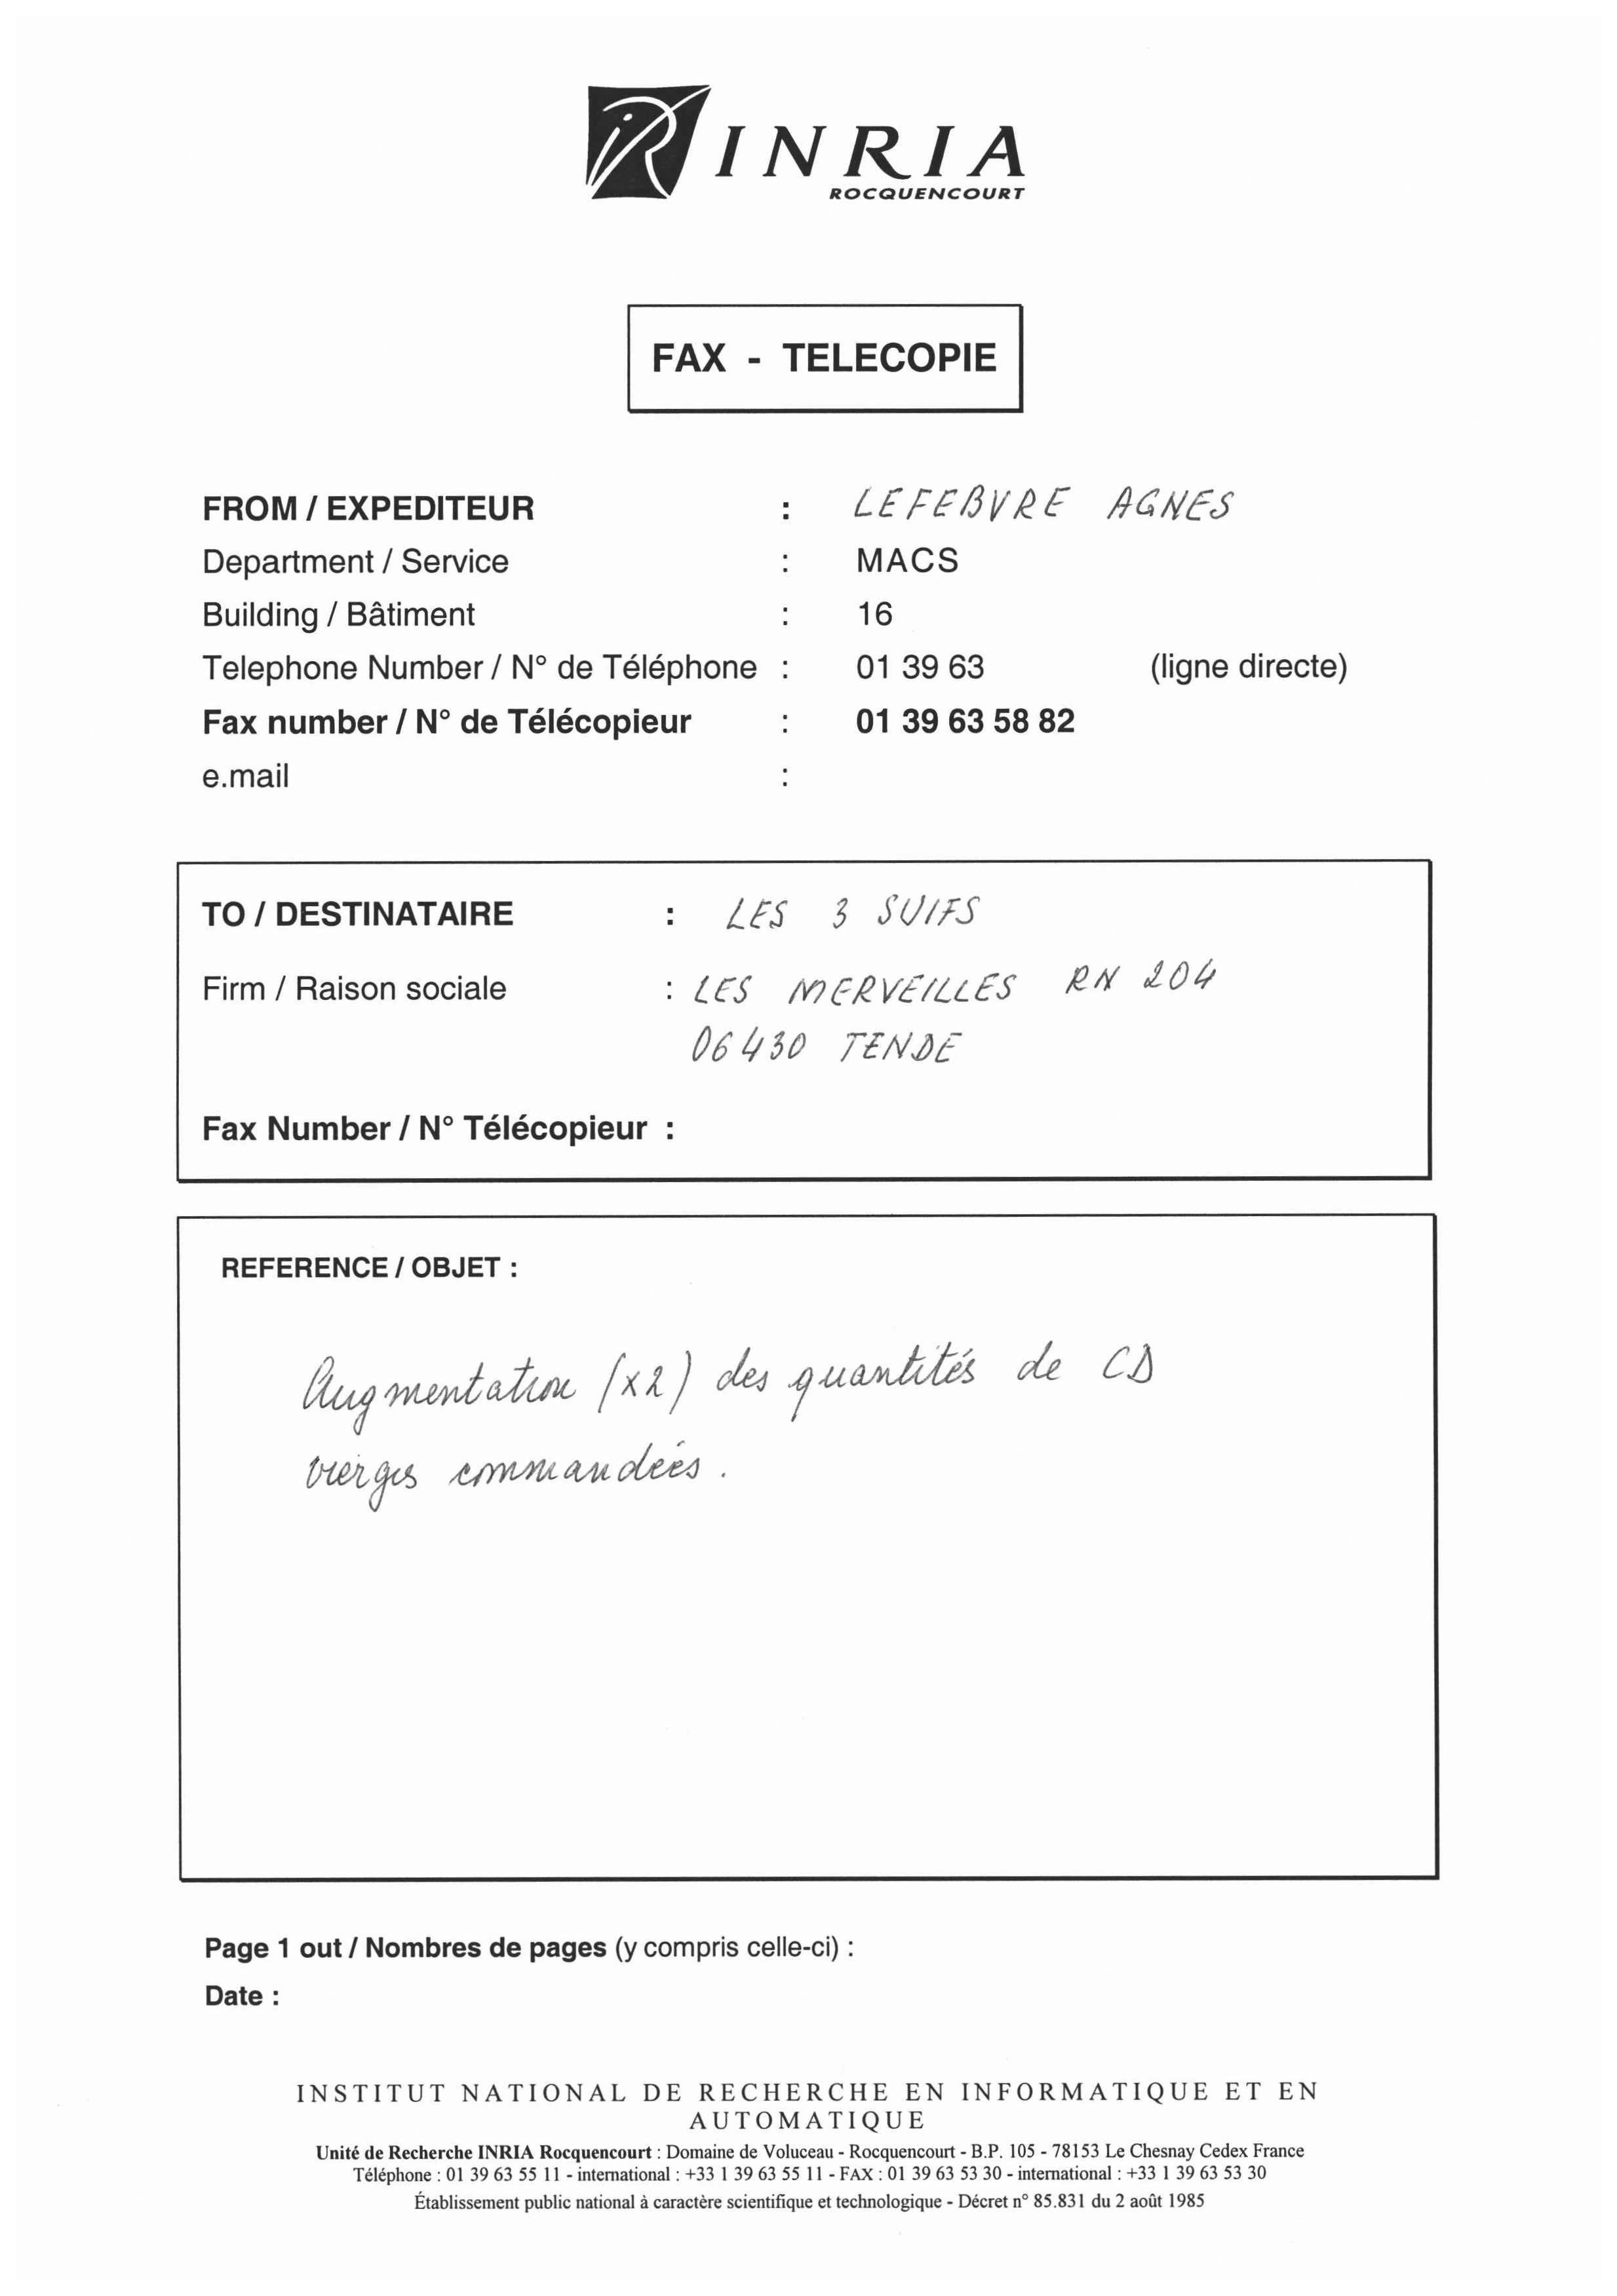 INRIA
ROCQUENCOURT
FAX - TELECOPIE
FROM / EXPEDITEUR : LEFEBVRE AGNES
Department / Service : MACS
Building / Bâtiment : 16
Telephone Number / N° de Téléphone : 01 39 63 (ligne directe)
Fax number / N° de Télécopieur : 01 39 63 58 82
e.mail :
TO / DESTINATAIRE : LES 3 SUIFS
Firm / Raison sociale : LES MERVEILLES RN 204
06430 TENDE
Fax Number / N° Télécopieur :
REFERENCE / OBJET :
Augmentation (x2) des quantités de CD
vierges commandées.
Page 1 out / Nombres de pages (y compris celle-ci) :
Date :
INSTITUT NATIONAL DE RECHERCHE EN INFORMATIQUE ET EN
AUTOMATIQUE
Unité de Recherche INRIA Rocquencourt : Domaine de Voluceau - Rocquencourt - B.P. 105 - 78153 Le Chesnay Cedex France
Téléphone : 01 39 63 55 11 - international : +33 1 39 63 55 11 - FAX : 01 39 63 53 30 - international : +33 1 39 63 53 30
Établissement public national à caractère scientifique et technologique - Décret n° 85.831 du 2 août 1985